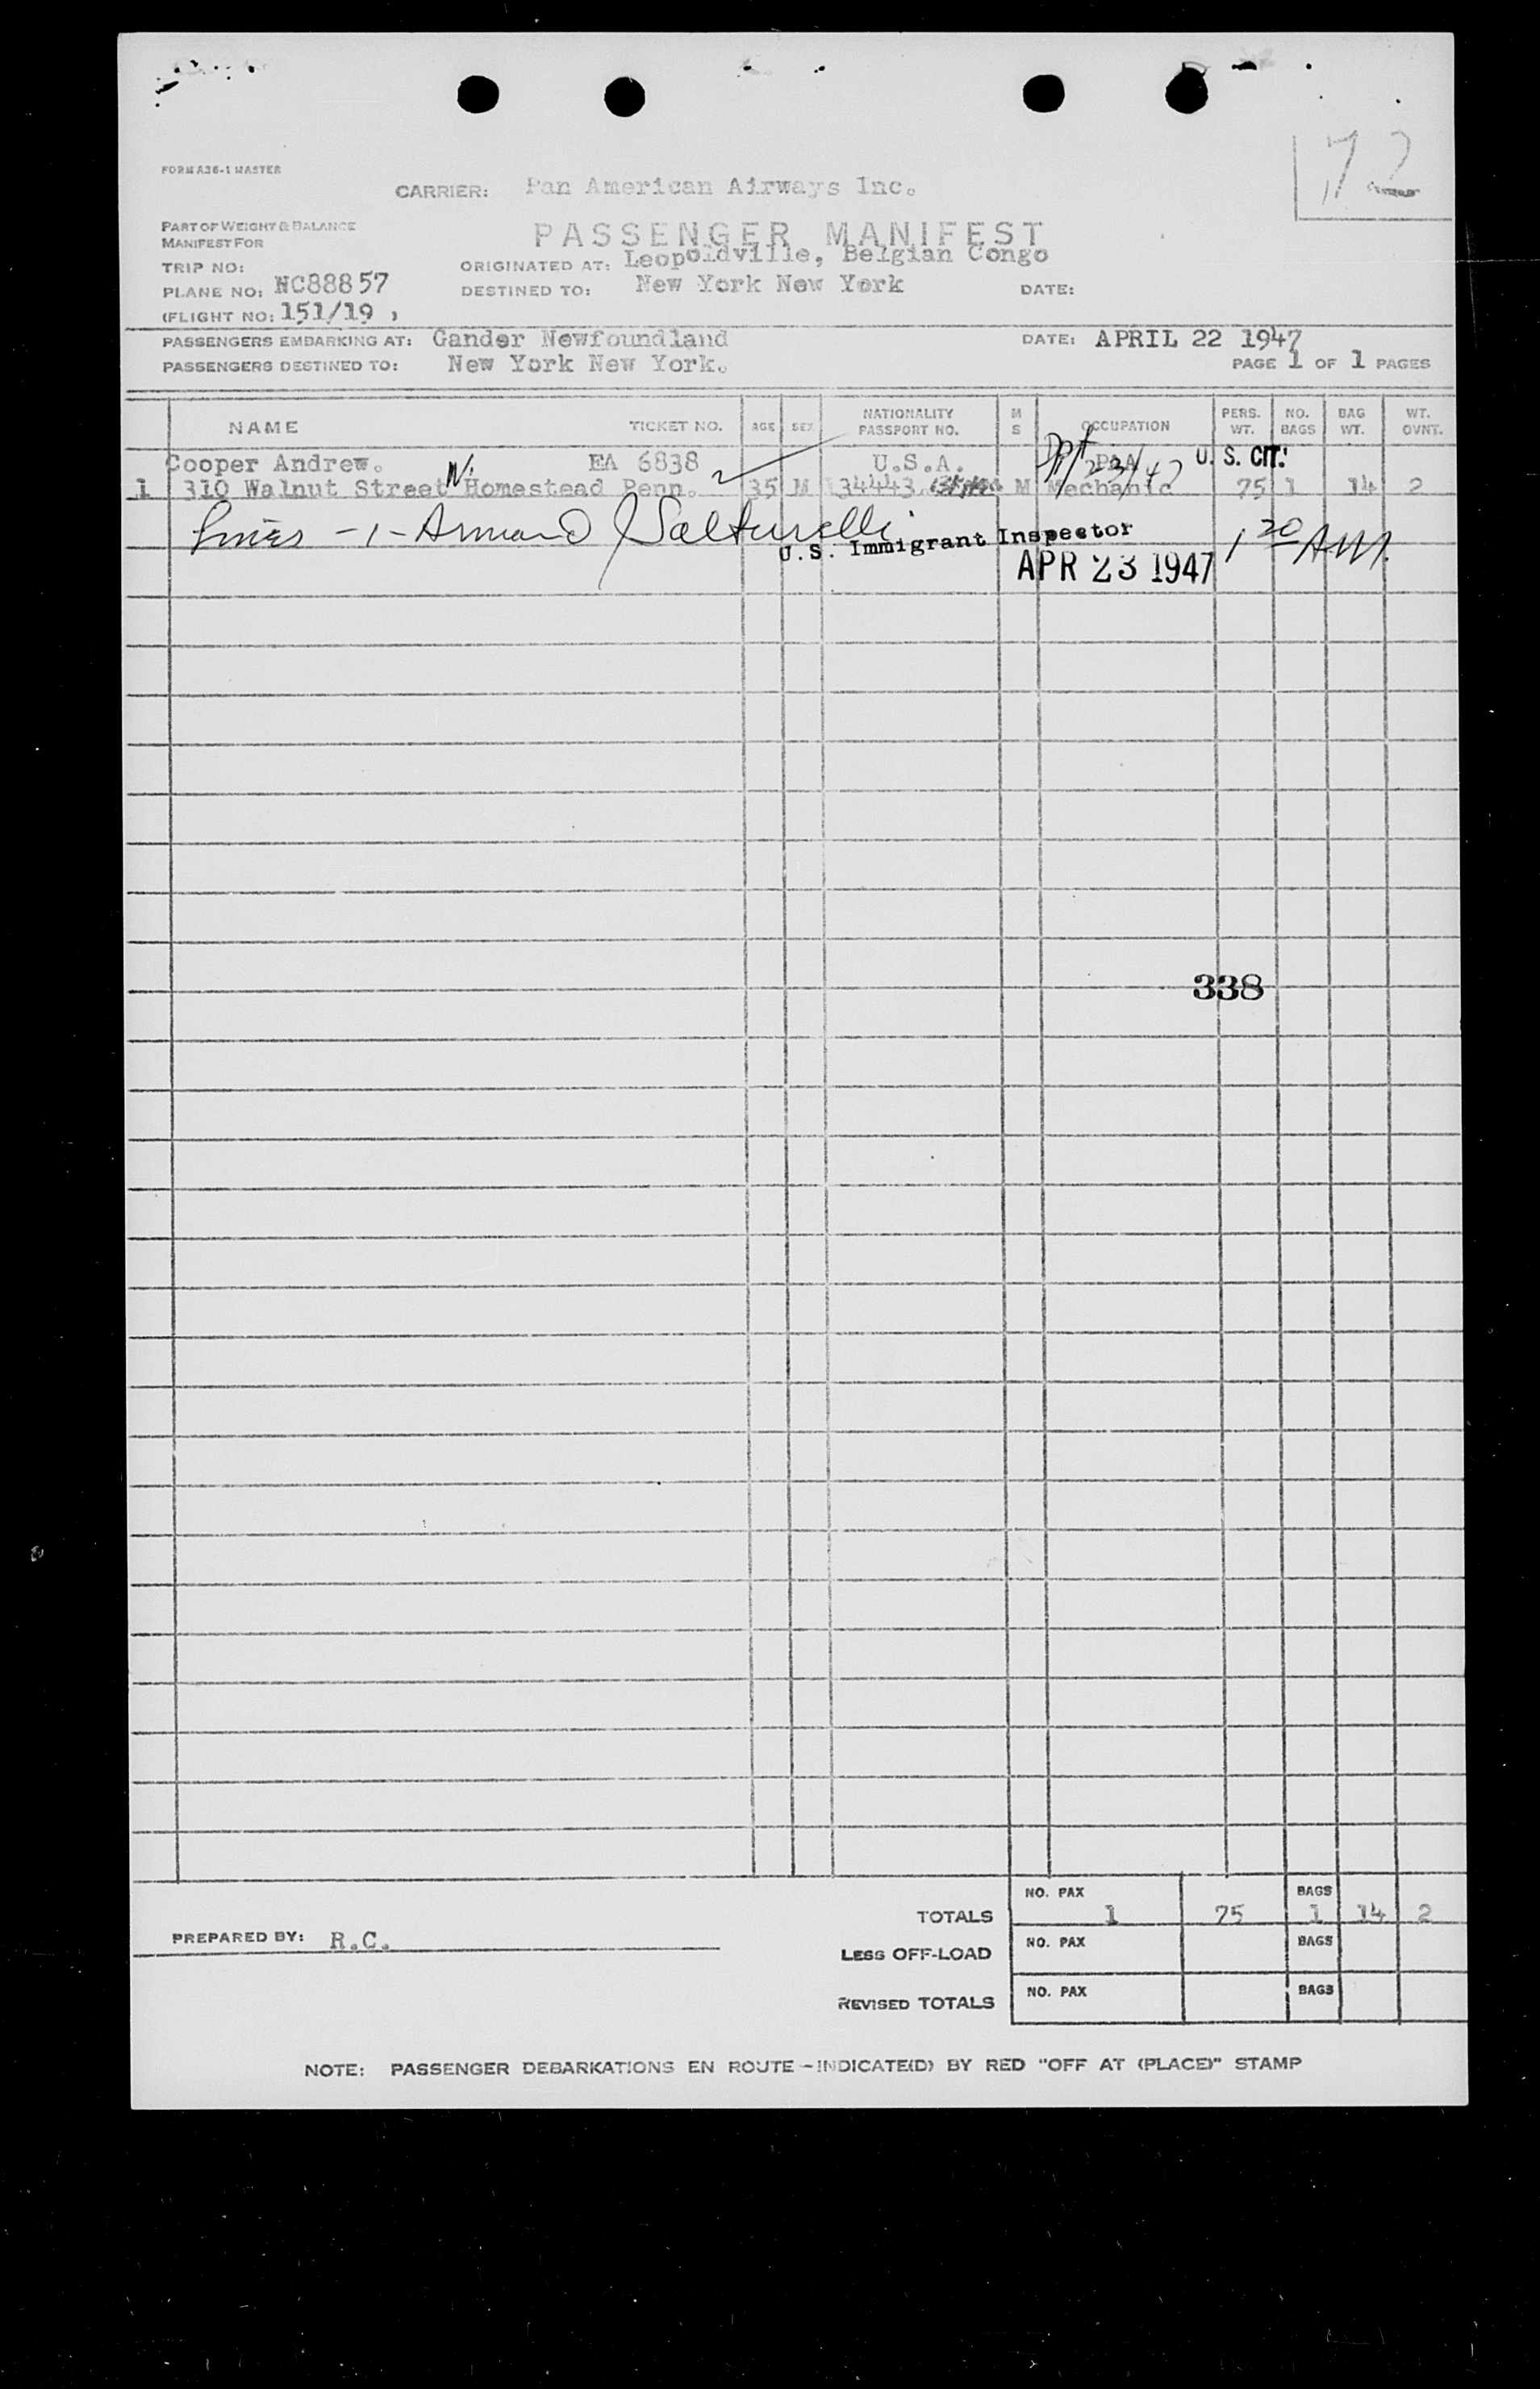 72
FORM A36-1 MASTER
CARRIER: Pan American Airways Inc.
PART OF WEIGHT & BALANCE
MANIFEST FOR
PASSENGER MANIFEST
TRIP NO:
ORIGINATED AT: Leopoldville, Belgian Congo
PLANE NO: NC88857
DESTINED TO: New York New York
DATE:
(FLIGHT NO: 151/19 )
PASSENGERS EMBARKING AT: Gander Newfoundland
DATE: APRIL 22 1947
PASSENGERS DESTINED TO: New York New York.
PAGE 1 OF 1 PAGES
NAME TICKET NO. AGE SEX NATIONALITY PASSPORT NO. M S OCCUPATION PERS. WT. NO. BAGS BAG WT. WT. OVNT.
Cooper Andrew. EA 6838 U.S.A. PAA U. S. CIT.
1 310 Walnut Street N. Homestead Penn. 35 M 34443 M Mechanic 75 1 14 2
Lines -1- Armand J Salturelli
U.S. Immigrant Inspector
APR 23 1947
1 30 AM.
338
NO. PAX BAGS
TOTALS 1 75 1 14 2
PREPARED BY: R.C.
LESS OFF-LOAD NO. PAX BAGS
REVISED TOTALS NO. PAX BAGS
NOTE: PASSENGER DEBARKATIONS EN ROUTE - INDICATE(D) BY RED "OFF AT (PLACE)" STAMP